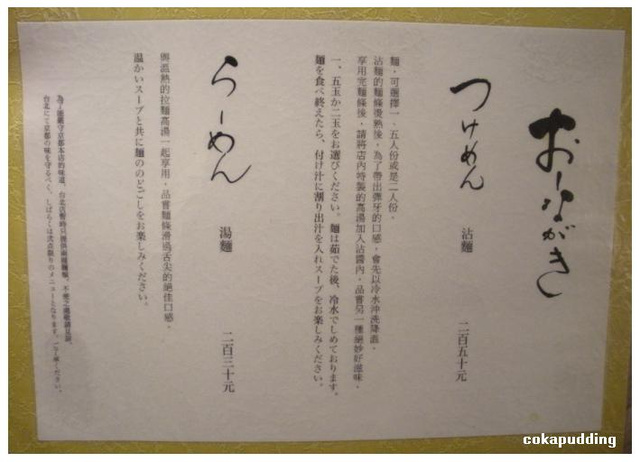 おしながき
つけめん 沾麵 二百五十元
麵，可選擇一．五人份或是二人份。
沾麵的麵條燙熟後，為了帶出彈牙的口感，會先以冷水沖洗降溫。
享用完麵條後，請將店內特製的高湯加入沾醬內，品嘗另一種絕妙好滋味。
一．五玉か二玉をお選びください。麺は茹でた後、冷水でしめております。
麺を食べ終えたら、付け汁に割り出汁を入れスープをお楽しみください。
らーめん 湯麵 二百三十元
與溫熱的拉麵高湯一起享用，品嘗麵條滑過舌尖的絕佳口感。
温かいスープと共に麺ののどごしをお楽しみください。
為了能嚴守京都本店的味道，台北店暫時只提供兩種麵類，不便之處敬請見諒。
台北にて京都の味を守るべく、しばらくは弐点限りのメニューとなります。ご了承ください。
cokapudding